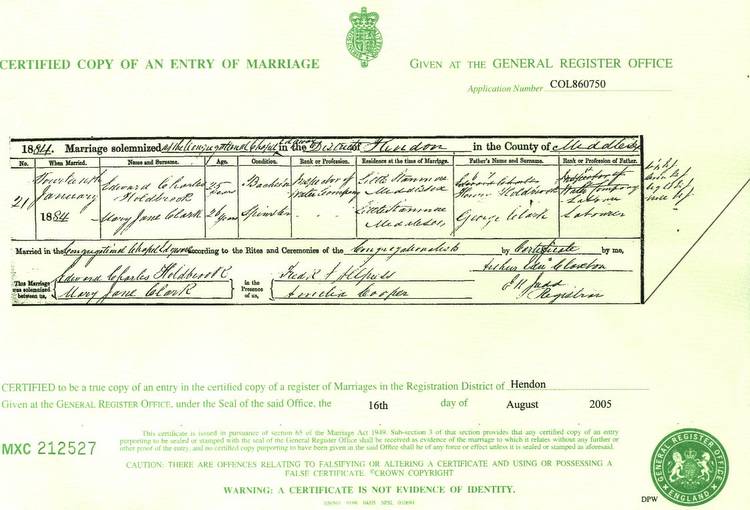 CERTIFIED COPY OF AN ENTRY OF MARRIAGE
GIVEN AT THE GENERAL REGISTER OFFICE
Application Number COL860750
1884. Marriage solemnized at the Congregational Chapel Edgware in the District of Hendon in the County of Middlesex
No. When Married. Name and Surname. Age. Condition. Rank or Profession. Residence at the time of Marriage. Father's Name and Surname. Rank or Profession of Father.
21 January 1884
Edward Charles Holdbrook 25 years Bachelor Inspector of Water Company Little Stanmore Middlesex Holdbrook Inspector of Water Company
Mary Jane Clark 26 years Spinster Little Stanmore Middlesex George Clark Labourer
Married in the Congregational Chapel Edgware according to the Rites and Ceremonies of the Congregationalists by Certificate by me,
This Marriage was solemnized between us,
Edward Charles Holdbrook
Mary Jane Clark
in the Presence of us,
Amelia Cooper
Arthur Claxton
Judd
Registrar
CERTIFIED to be a true copy of an entry in the certified copy of a register of Marriages in the Registration District of Hendon
Given at the GENERAL REGISTER OFFICE, under the Seal of the said Office, the 16th day of August 2005
MXC 212527
This certificate is issued in pursuance of section 65 of the Marriage Act 1949. Sub-section 3 of that section provides that any certified copy of an entry
purporting to be sealed or stamped with the seal of the General Register Office shall be received as evidence of the marriage to which it relates without any further or
other proof of the entry, and no certified copy purporting to have been given in the said Office shall be of any force or effect unless it is sealed or stamped as aforesaid.
CAUTION: THERE ARE OFFENCES RELATING TO FALSIFYING OR ALTERING A CERTIFICATE AND USING OR POSSESSING A
FALSE CERTIFICATE. ©CROWN COPYRIGHT
WARNING: A CERTIFICATE IS NOT EVIDENCE OF IDENTITY.
GENERAL REGISTER OFFICE
ENGLAND
DPW